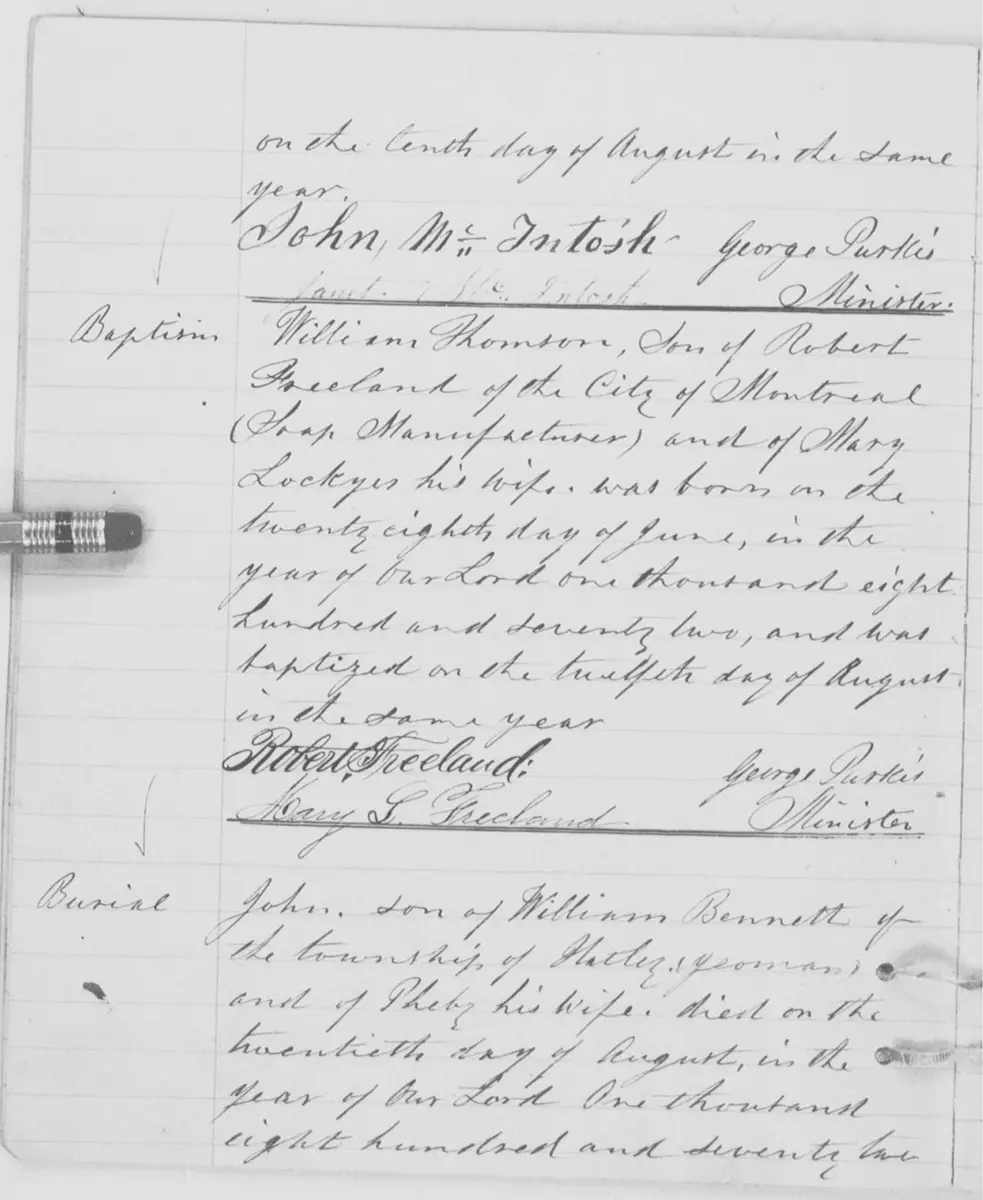 on the tenth day of August in the same
year.
John, Mc Intosh George Purkis
Janet Mc Intosh Minister.
Baptism William Thomson, Son of Robert
Freeland of the City of Montreal
(Soap Manufacturer) and of Mary
Lockyer his wife. was born on the
twenty eighth day of June, in the
year of Our Lord one thousand eight
hundred and seventy two, and was
baptized on the twelfth day of August.
in the same year
Robert Freeland: George Purkis
Mary L. Freeland Minister
Burial John. son of William Bennett of
the township of Hatley (yeoman)
and of Pheby his wife. died on the
twentieth day of August, in the
year of Our Lord One thousand
eight hundred and seventy two